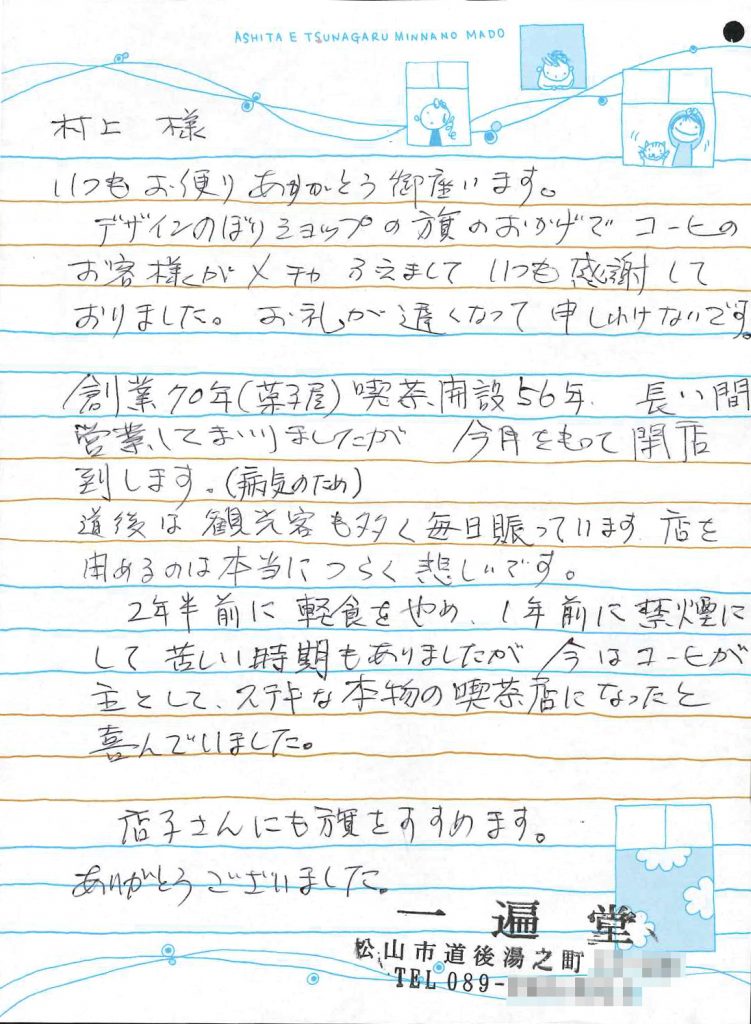 ASHITA E TSUNAGARU MINNANO MADO
村上 様
いつもお便りありがとう御座います。
デザインのぼりショップの旗のおかげでコーヒの
お客様がメチャふえまして いつも感謝して
おりました。お礼が遅くなって申しわけないです。
創業70年(菓子屋)喫茶開設56年. 長い間
営業してまいりましたが 今月をもって閉店
到します。(病気のため)
道後は観光客も多く毎日賑っています 店を
閉めるのは本当につらく悲しいです。
2年半前に軽食をやめ、1年前に禁煙に
して苦しい時期もありましたが 今はコーヒが
主として、ステキな本物の喫茶店になったと
喜んでいました。
店子さんにも旗をすすめます。
ありがとうございました。
一遍堂
松山市道後湯之町
TEL 089-